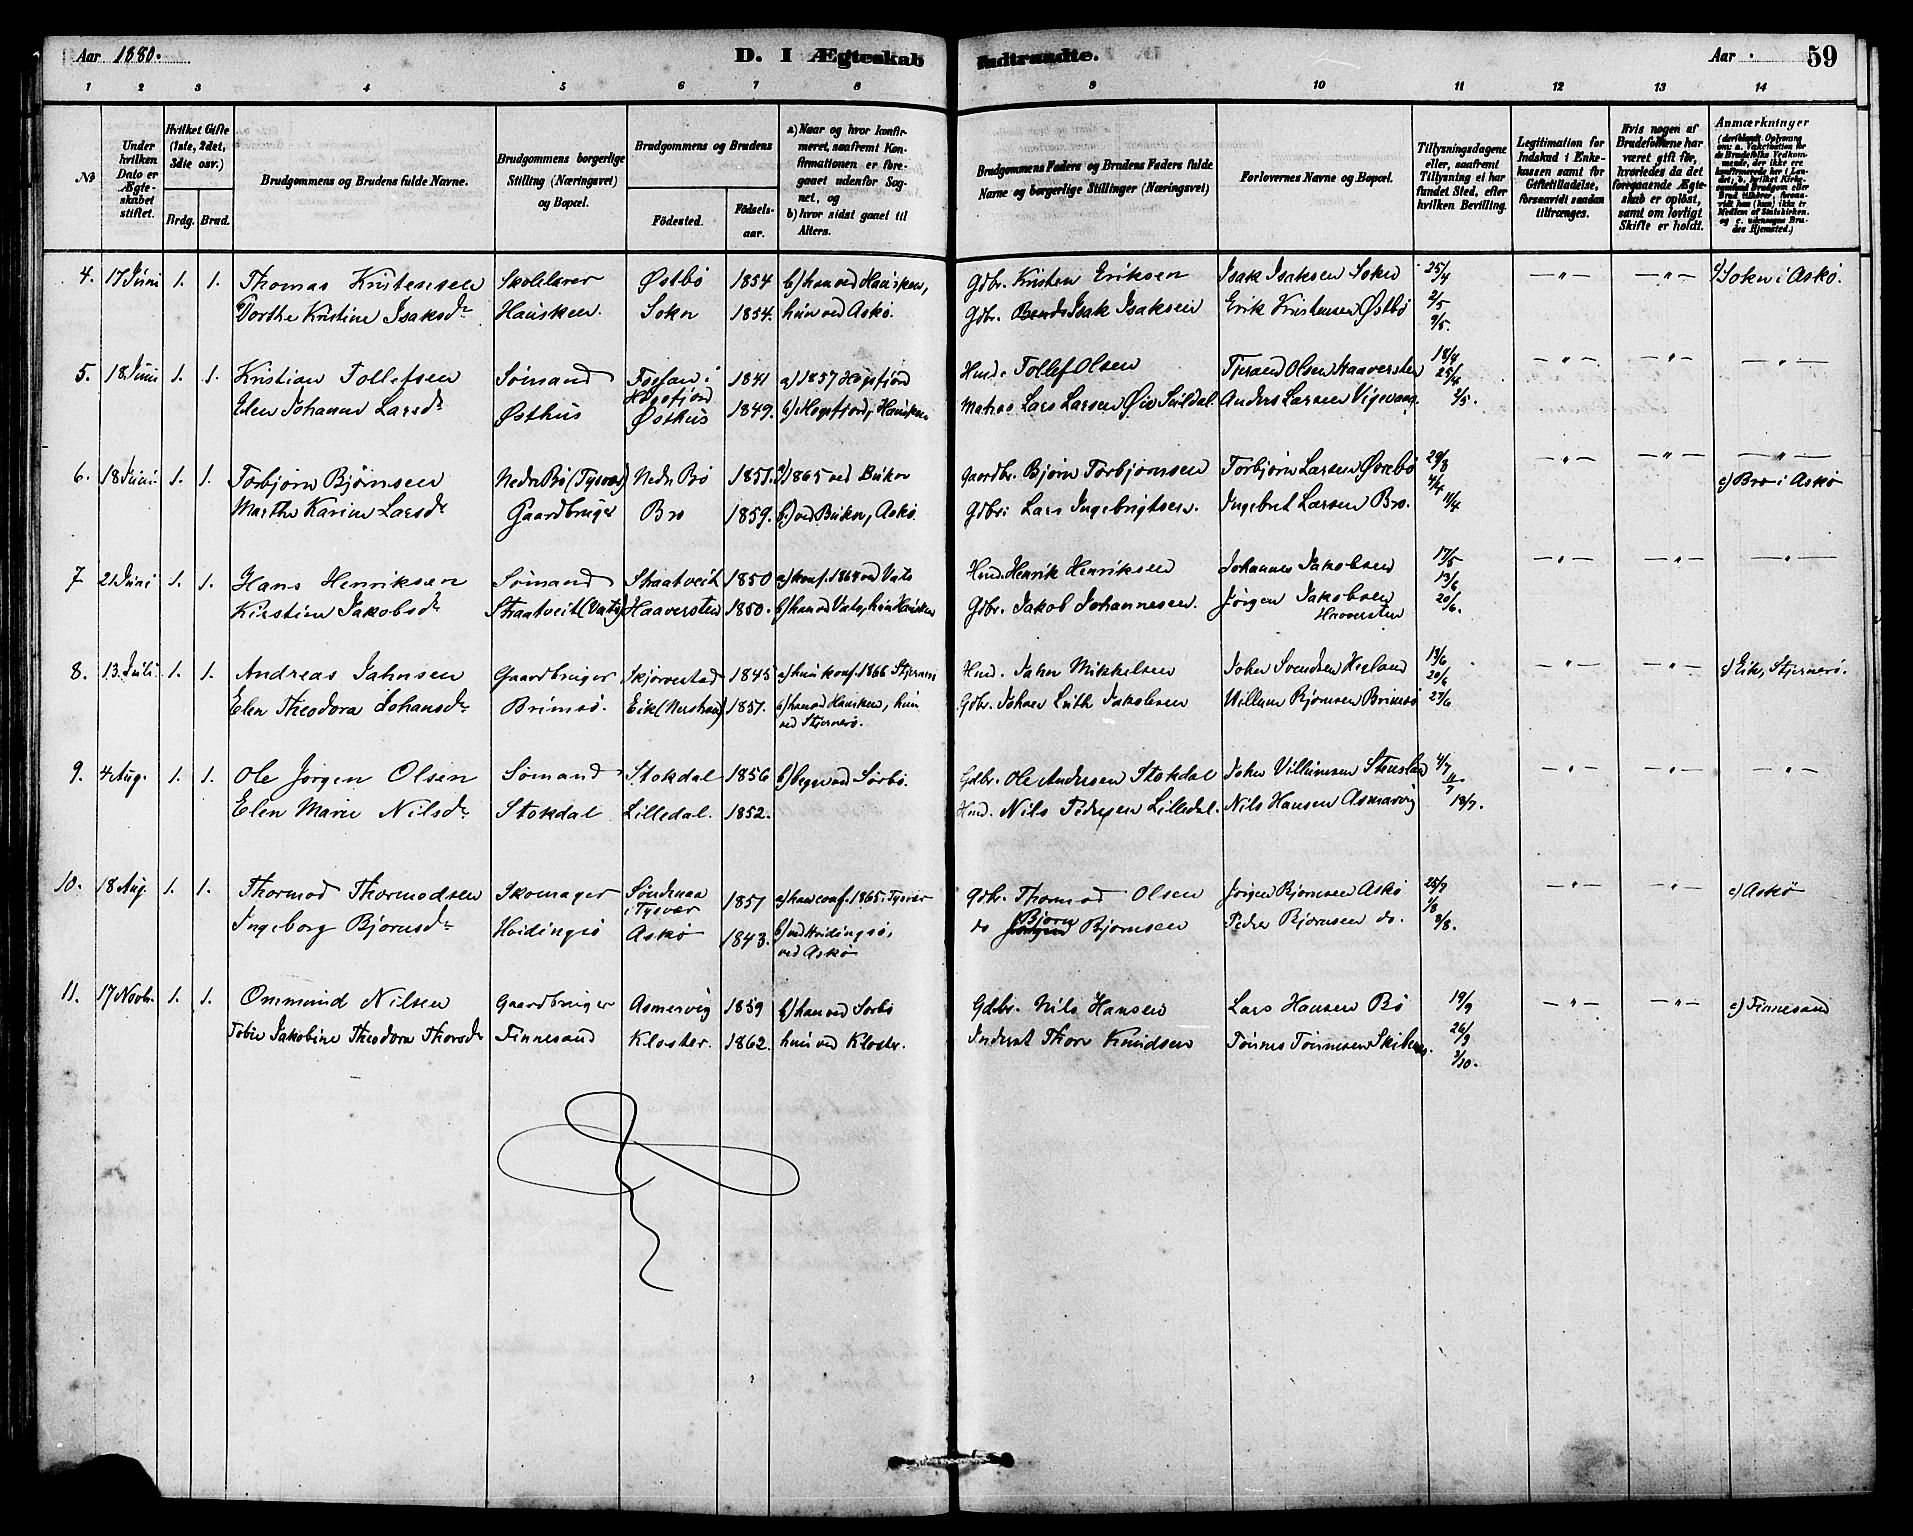 Aar 1880. D. I Ægteskab indtraadte. Aar 59
1 2 3 4 5 6 7 8 9 10 11 12 13 14
No
Under hvilken Dato er Ægteskabet stiftet.
Hvilket Gifte (1ste, 2det, 3die osv.)
Brdg. Brud.
Brudgommens og Brudens fulde Navne.
Brudgommens borgerlige Stilling (Næringsvei) og Bopæl.
Brudgommens og Brudens
Fødested. Fødselsaar.
a) Naar og hvor konfirmeret, saafremt Konfirmationen er foregaaet udenfor Sognet, og
b) hvor sidst gaaet til Alters.
Brudgommens Faders og Brudens Faders fulde Navne og borgerlige Stillinger (Næringsvei)
Forlovernes Navne og Bopæl.
Tillysningsdagene eller, saafremt Tillysning ei har fundet Sted, efter hvilken Bevilling.
Legitimation for Indskud i Enkekassen samt for Giftetilladelse, forsaavidt saadan tiltrænges.
Hvis nogen af Brudefolkene har været gift før, hvorledes da det foregaaende Ægteskab er opløst, samt om lovligt Skifte er holdt.
Anmærkninger
4. 17 Juni 1. 1. Thomas Kristensen Skolelærer Østbø 1854 b) han ved Hausken, Gdbr. Kristen Eriksen Isak Isaksen Sokn 25/4 —"— —"— c) Sokn i Askø.
Dorthe Kristine Isaksdr Hausken Sokn 1854. hun ved Askø. Gdbr. Isak Isaksen Erik Kristensen Østbø 2/5
9/5.
5. 18 Juni 1. 1. Kristian Tollefsen Sømand Fossan i 1841 a) 1857 Høgsfjord Husd. Tollef Olsen Olsen Haaversten 18/4 —"— —"— —"—
Høgsfjord 25/4
Elen Johanne Larsdr Østhus Østhus 1849. b) Høgsfjord, Hausken Matros Lars Larsen Øiv Suldal. Anders Larsen Vigevaag. 2/5.
6. 18 Juni 1. 1. Torbjørn Bjørnsen Nedre Bø (Tysvær) Nedre Bø 1851. a) 1865 ved Bukn Gaardbr. Bjørn Torbjørnsen Torbjørn Larsen Ørebø 29/3 —"— —"— —"—
4/4 c) Bro i Askø
Marthe Karine Larsdr Gaardbruger Bro 1859. b) ved Bukn, Askø. Gdbr. Lars Ingebrigtsen. Ingebret Larsen Bro. 11/4
7 21 Juni 1. 1. Hans Henriksen Sømand Straatveit 1850 a) konf. 1864 ved Vats Husd. Henrik Henriksen Johannes Jakobsen 17/5 —"— —"— —"—
13/6
Kirstine Jakobsdr Straatveit (Vats) Haaversten 1850. b) han ved Vats, hun Hausken Gdbr. Jakob Johannesen. Jørgen Jakobsen 20/6.
Haaversten
8. 13 Juli 1. 1. Andreas Jahnsen Gaardbruger Skjørvestad 1845 a) hun konf. 1866 Stjernerø Husd. Jahn Mikkelsen John Svendsen Hesland 13/6. —"— —"— c) Eik, Stjernerø.
20/6
Elen Theodora Johansdr Brimsø. Eik (Nerstran) 1851. b) han ved Hausken, hun Gdbr. Johan Luth Jakobsen Willum Bjørnsen Brimsø 27/6
ved Stjernerø.
9. 4 Aug. 1. 1. Ole Jørgen Olsen Sømand Stokdal 1856 b) begge ved Sørbø. Gdbr. Ole Andersen Stokdal John Villumsen 4/7 —"— —"— —"—
11/7
Elen Marie Nilsdr Stokdal Lilledal. 1852. Husd. Nils Pedersen Lilledal. Nils Hansen Asmarvig 18/7.
10. 18 Aug. 1. 1. Thormod Thormodsen Skomager Søndenaa 1851 a) han conf. 1865. Tysvær Gdbr. Thormod Olsen Jørgen Bjørnsen Askø 25/7 —"— —"— c) Askø
i Tysvær 1/8
Ingeborg Bjørnsdr Hvidingsø Askø 1843. b) ved Hvidingsø, do Bjørn Bjørnsen Peder Bjørnsen do. 8/8.
ved Askø
11. 17 Novbr. 1. 1. Ommund Nilsen Gaardbruger Asmervig 1859 b) han ved Sørbø Gdbr. Nils Hansen Lars Hansen Bø 19/9 —"— —"— c) Finnesand
Tobie Jakobine Theodora Thorsdr Finnesand Kloster. 1862. hun ved Kloster. Inderst Thore Knudsen Tønnes Tønnesen 26/9
3/10.